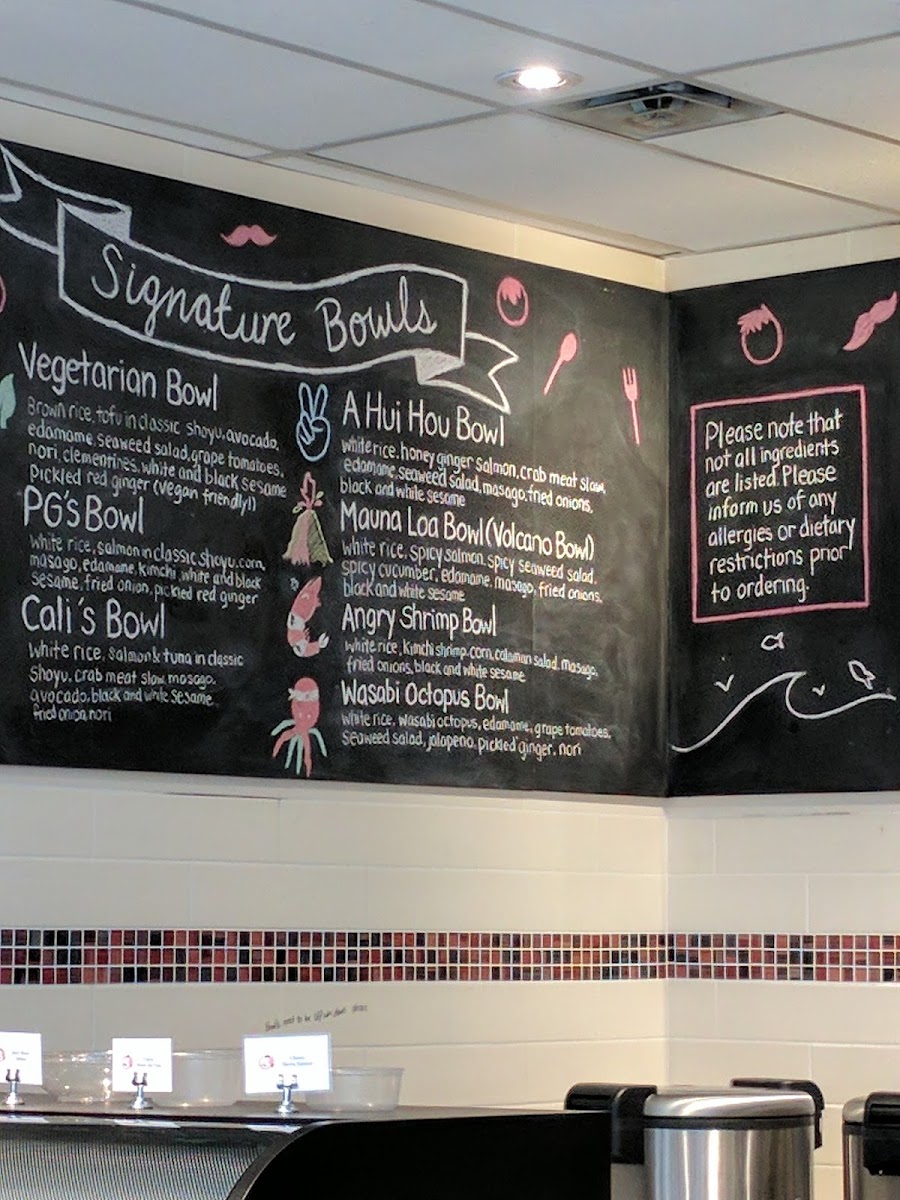 Signature Bowls
Vegetarian Bowl
Brown rice, tofu in classic shoyu, avocado,
edamame, seaweed salad, grape tomatoes,
nori, clementines, white and black sesame
pickled red ginger (vegan friendly!)
PG's Bowl
White rice, salmon in classic shoyu, corn,
masago, edamame, kimchi, white and black
sesame, fried onion, pickled red ginger
Cali's Bowl
White rice, salmon & tuna in classic
shoyu, crab meat slaw, masago,
avocado, black and white sesame,
fried onion, nori
A Hui Hou Bowl
white rice, honey ginger salmon, crab meat slaw,
edamame, seaweed salad, masago, fried onions,
black and white sesame
Mauna Loa Bowl (Volcano Bowl)
White rice, spicy salmon, spicy seaweed salad,
spicy cucumber, edamame, masago, fried onions,
black and white sesame
Angry Shrimp Bowl
White rice, kimchi shrimp, corn, calamari salad, masago,
fried onions, black and white sesame
Wasabi Octopus Bowl
White rice, wasabi octopus, edamame, grape tomatoes,
Seaweed salad, jalapeno, pickled ginger, nori
Please note that
not all ingredients
are listed. Please
inform us of any
allergies or dietary
restrictions prior
to ordering.